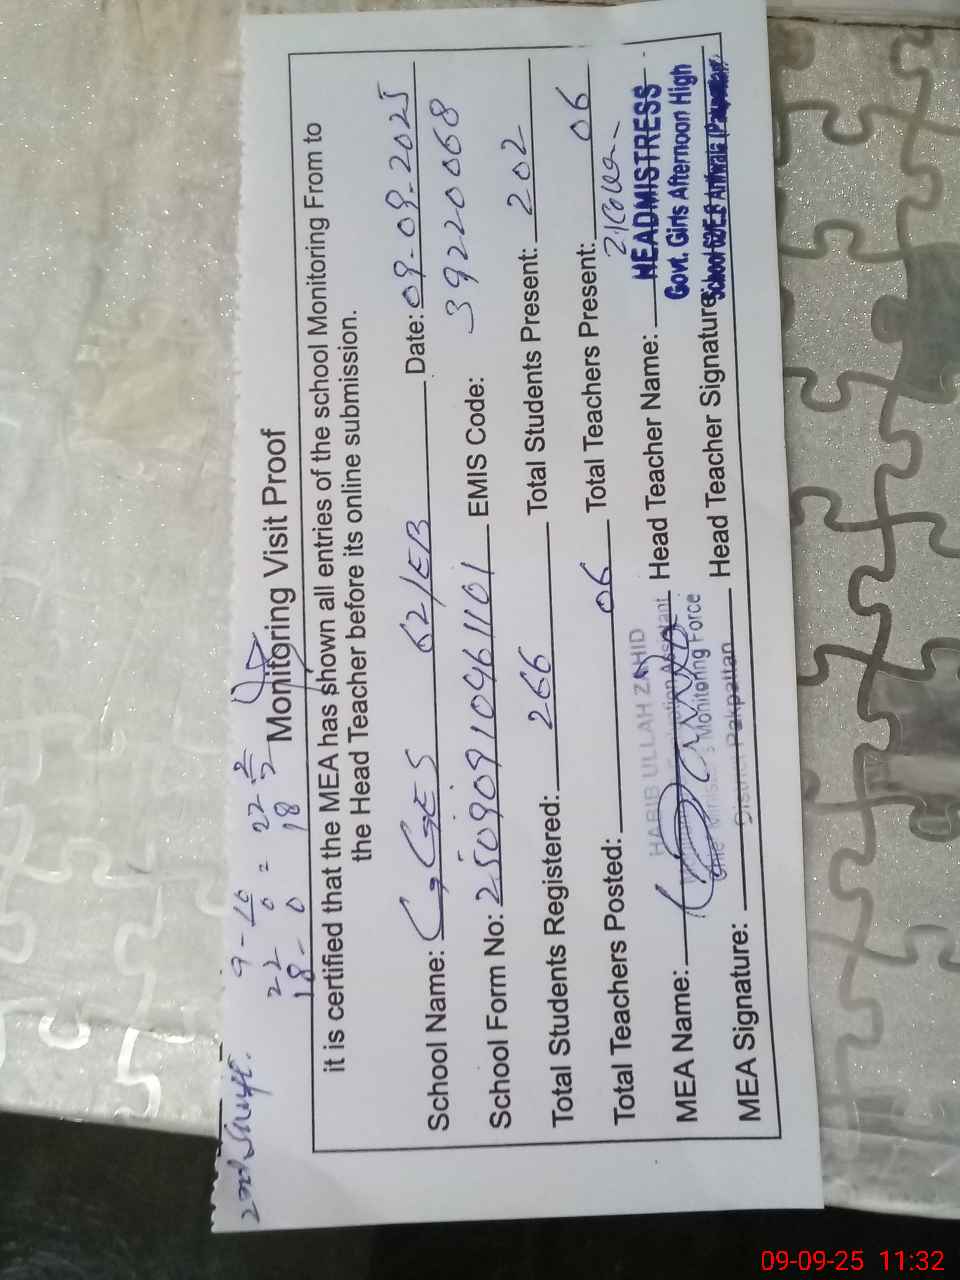 2nd Shift.
22 0 = 22
18 - 0 18
Monitoring Visit Proof
it is certified that the MEA has shown all entries of the school Monitoring From to
the Head Teacher before its online submission.
School Name: GGES 62/EB Date: 09-09-2025
School Form No: 250909109461101 EMIS Code: 39220068
Total Students Registered: 266 Total Students Present: 202
Total Teachers Posted: 06 Total Teachers Present: 06
MEA Name: HABIB ULLAH ZAHID Head Teacher Name: HEADMISTRESS
Monitoring Force Govt. Girls Afternoon High
MEA Signature: District Pakpattan Head Teacher Signature: School
09-09-25 11:32